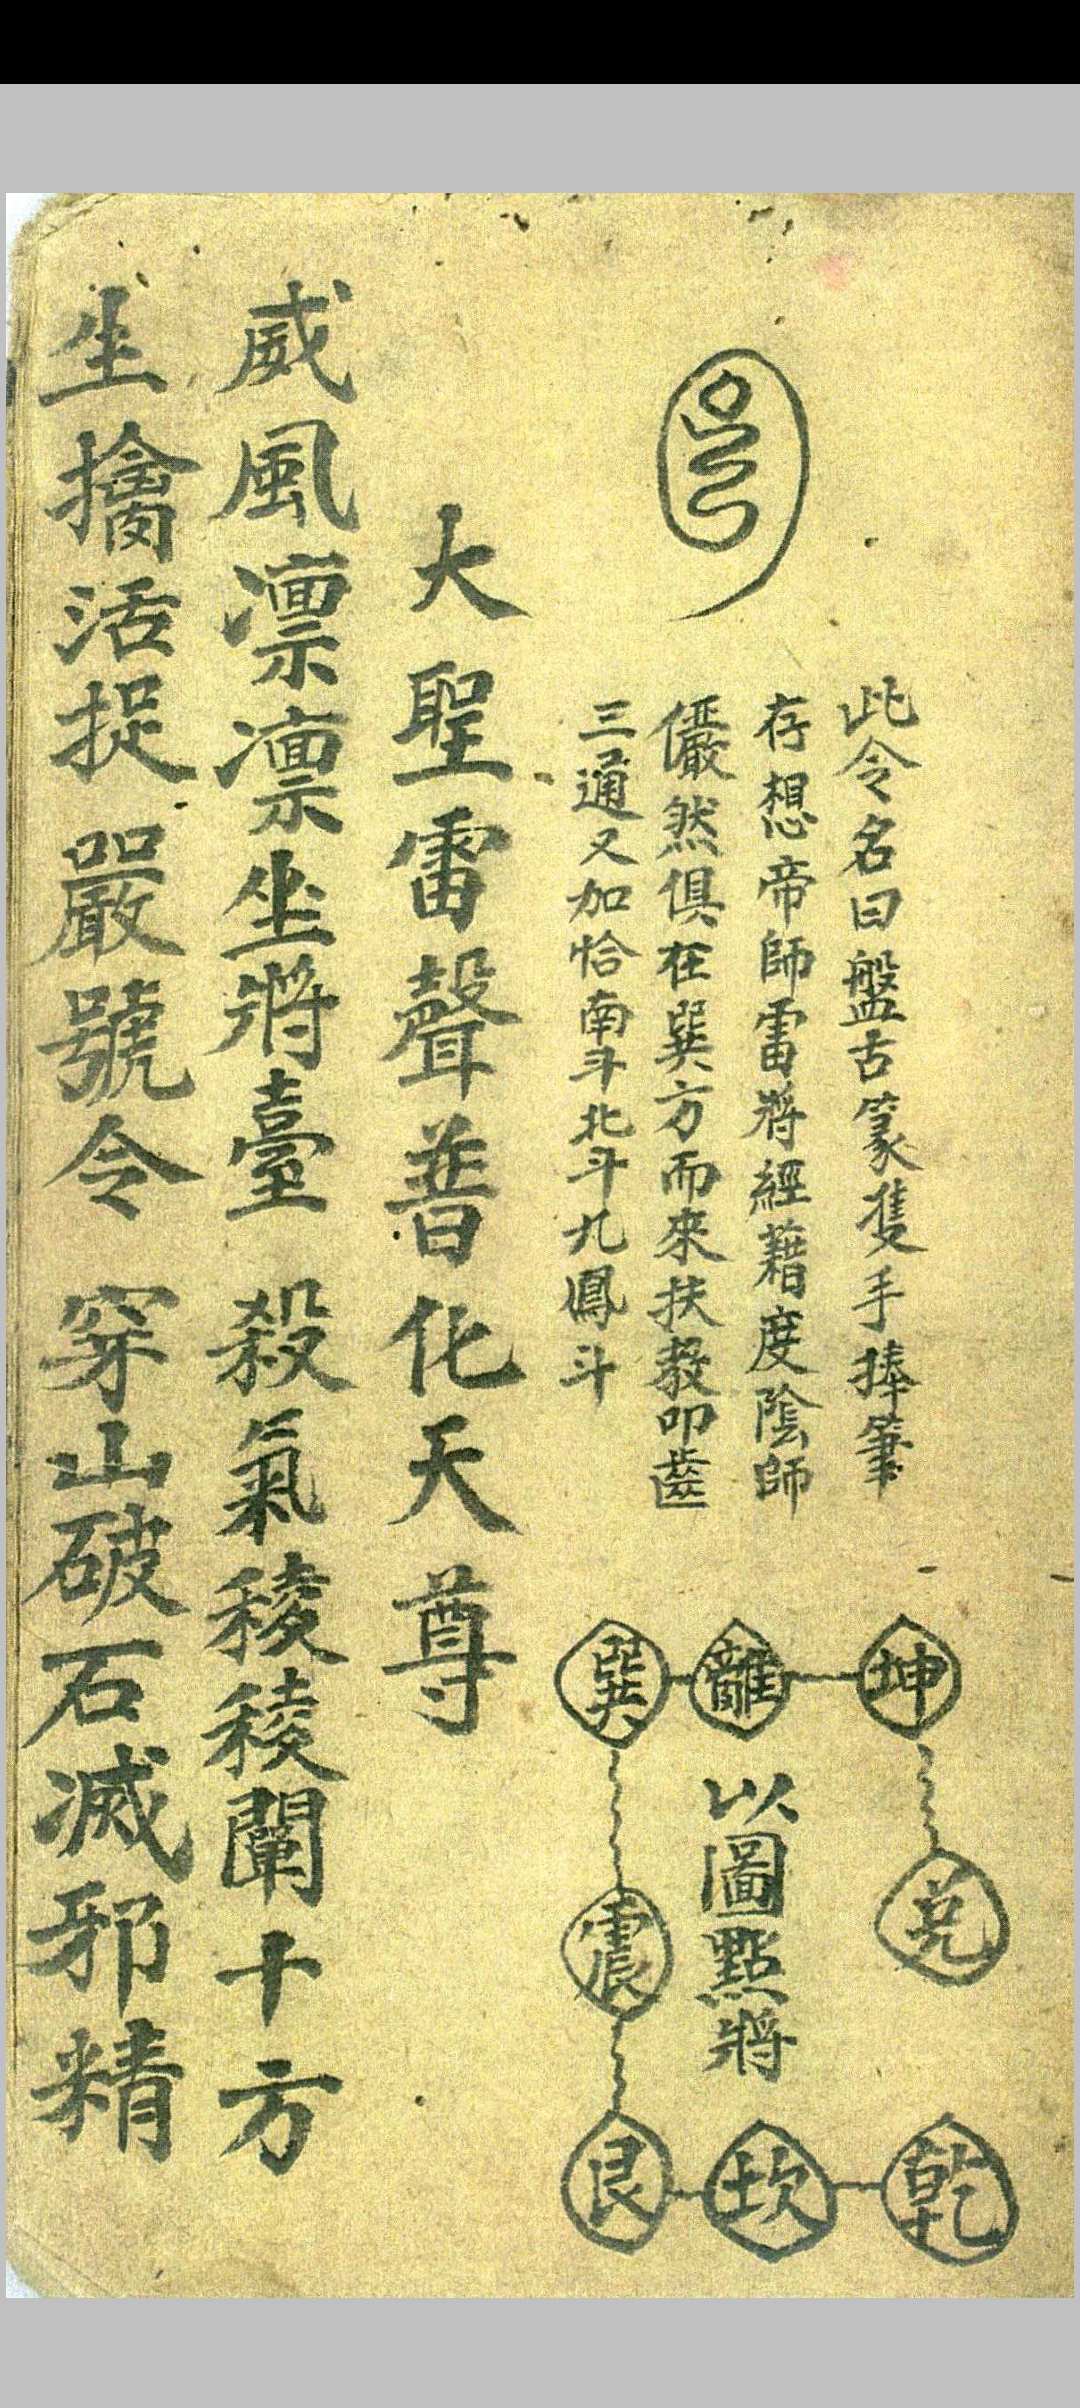 此令名曰盤古篆隻手捧筆
存想帝師雷將經藉度陰師
儼然俱在巽方而來扶教叩齒
三通又加恰南斗北斗九鳳斗
坤
離
巽
兌
以圖點將
震
乾
坎
艮
大聖雷聲普化天尊
威風凛凛坐將臺 殺氣稜稜闡十方
生擒活捉嚴號令 穿山破石滅邪精